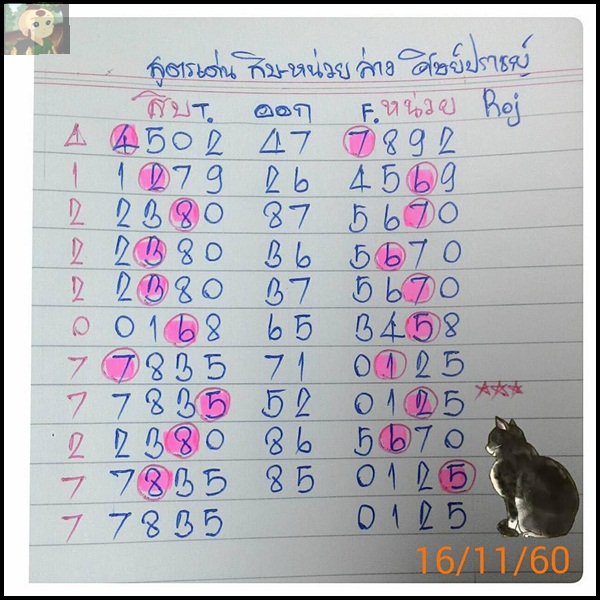 สูตรเด่น สิบ-หน่วย ล่าง ศิษย์ปราชญ์
สิบ T. ออก F. หน่วย Roj
4 4502 47 7892
1 1279 26 4569
2 2380 87 5670
2 2380 36 5670
2 2380 37 5670
0 0168 65 3458
7 7835 71 0125
7 7835 52 0125 ***
2 2380 86 5670
7 7835 85 0125
7 7835 0125
16/11/60